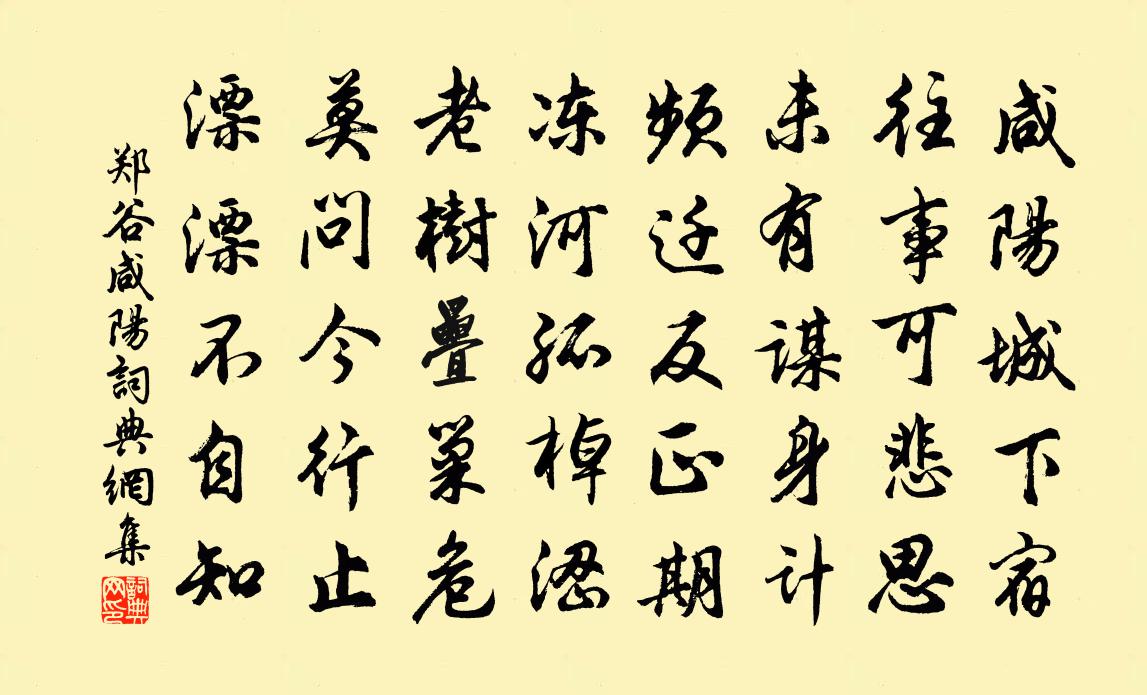 咸陽城下宿
往事可悲思
未有謀身計
頻迁反正期
冻河孤棹涩
老樹疊巢危
莫問今行止
漂漂不自知
郑谷咸陽詞典網集
詞典网印